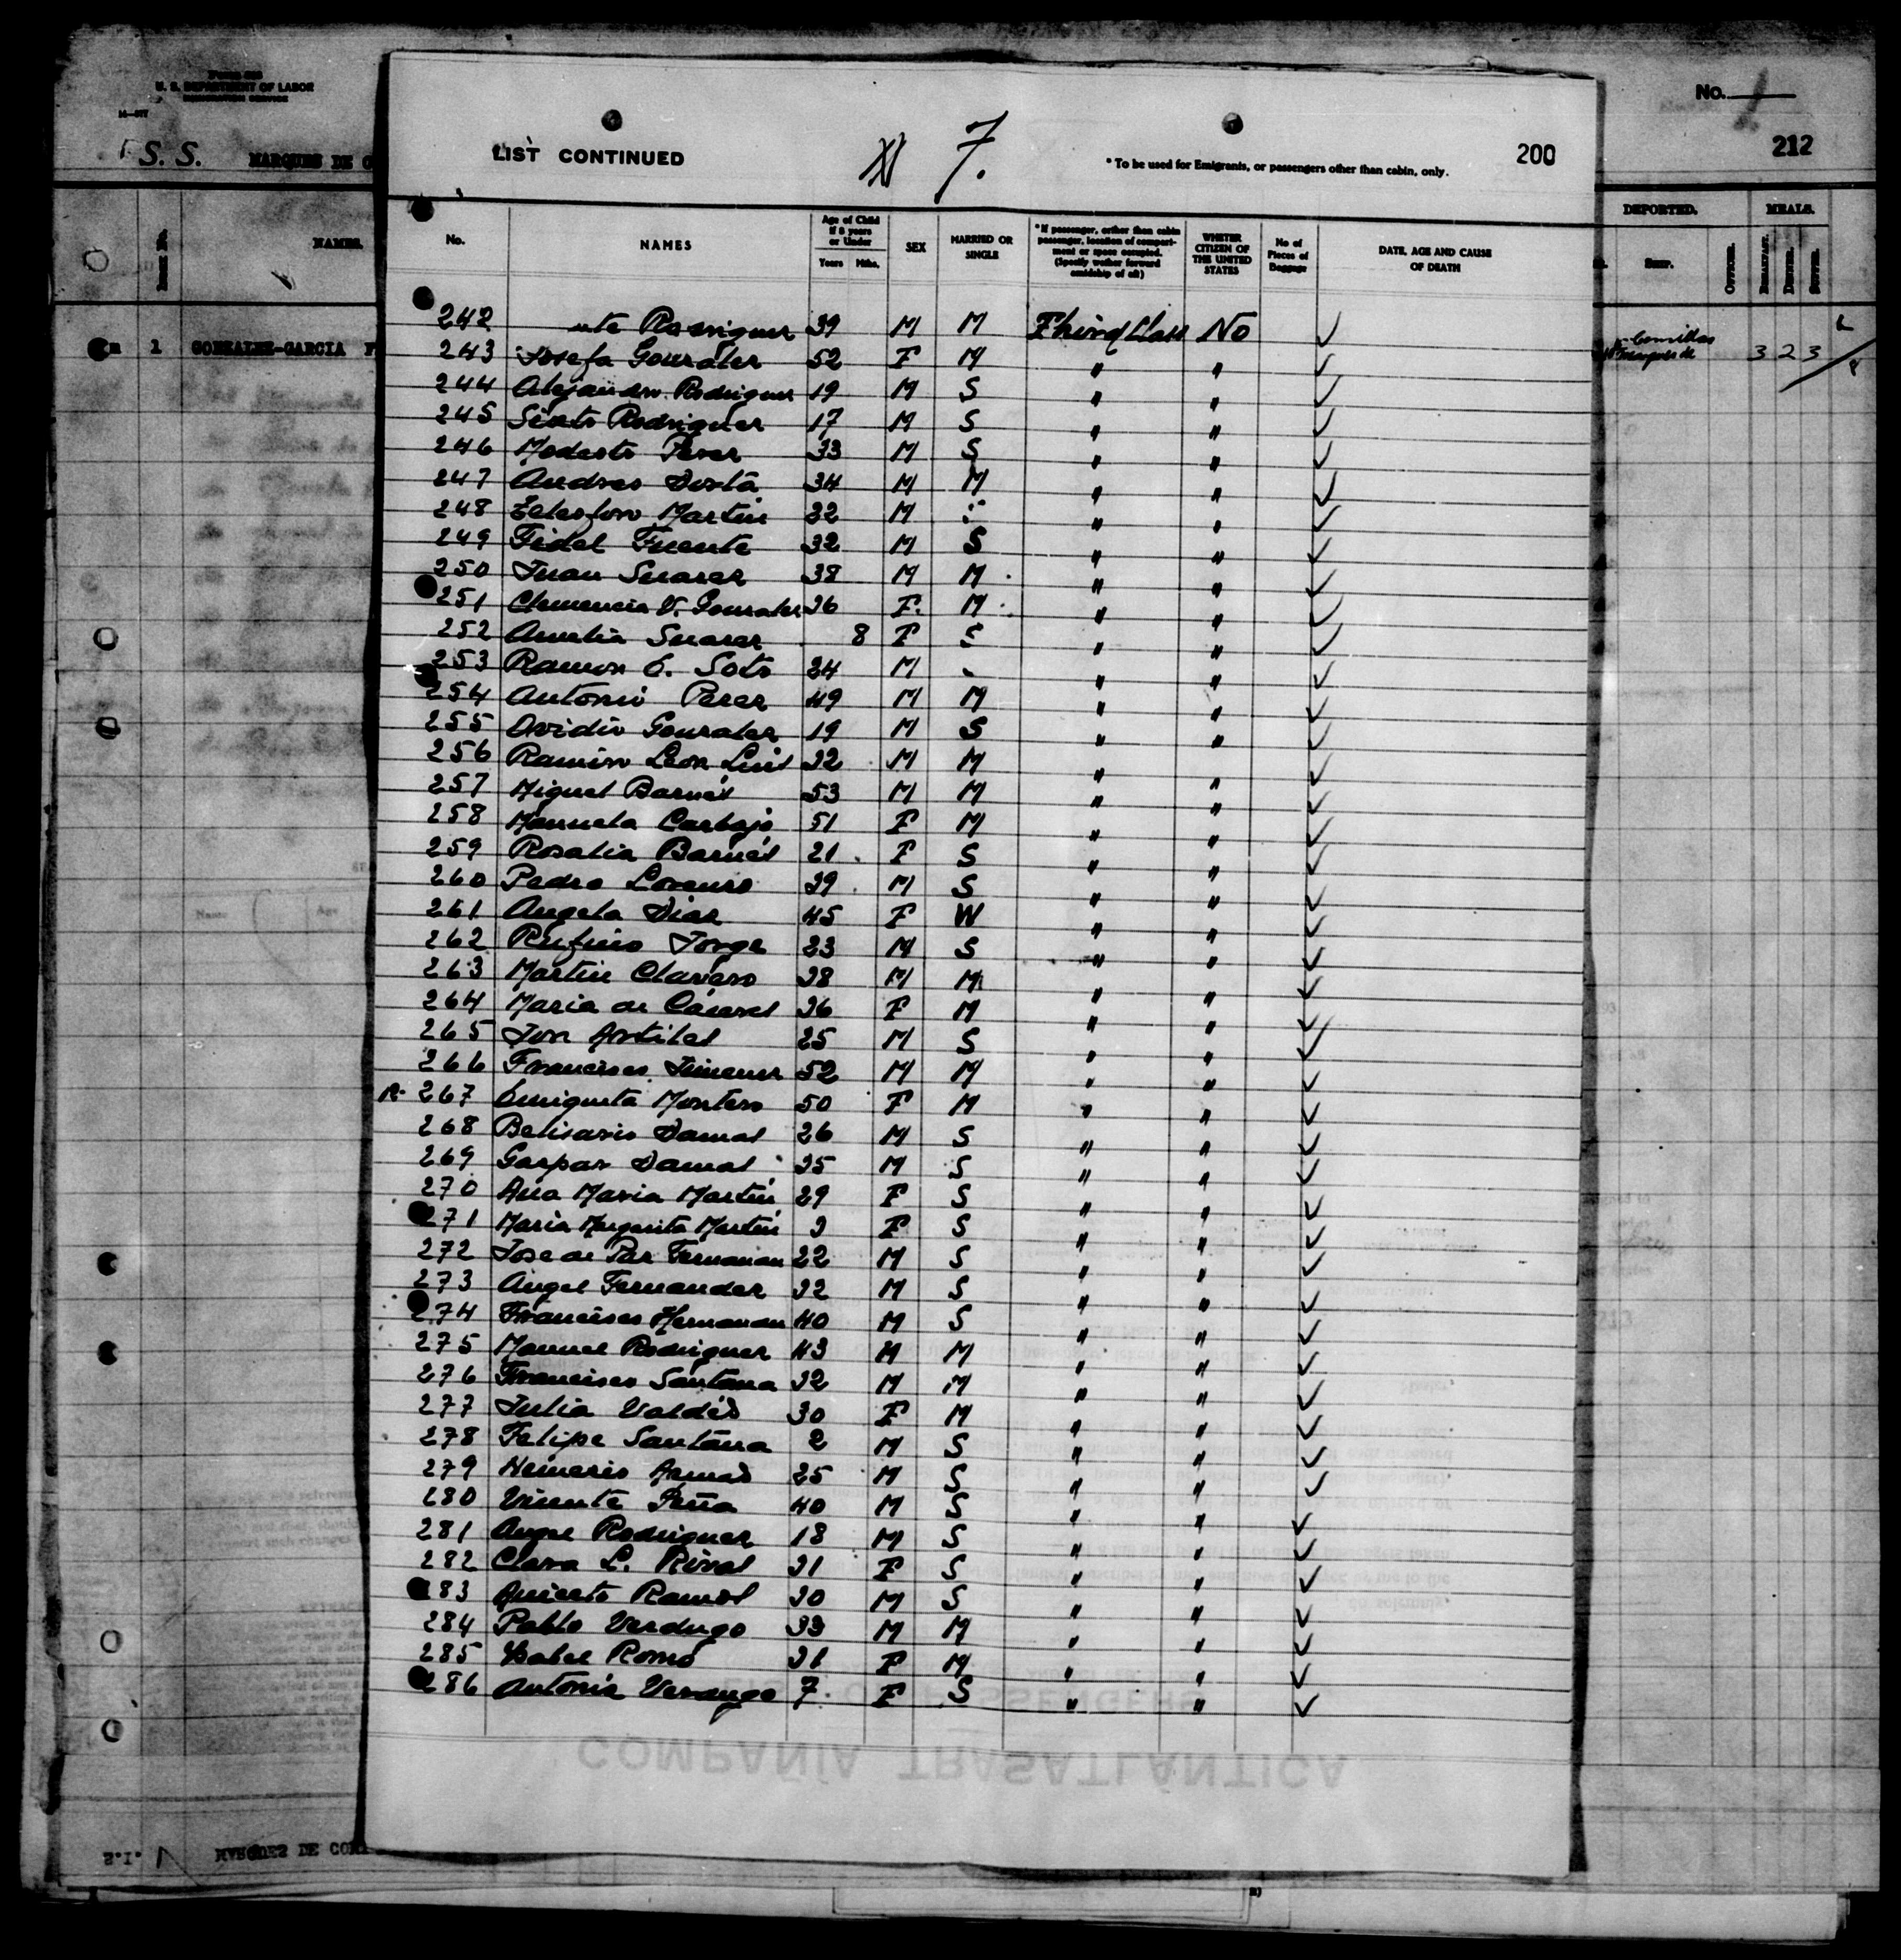 U. S. DEPARTMENT OF LABOR
No.
S. S. MARQUES DE C
212
LIST CONTINUED
7.
* To be used for Emigrants, or passengers other than cabin, only.
200
NAMES.
No.
NAMES
Age of Child if 8 years or Under
Years Mths.
SEX
MARRIED OR SINGLE
* If passenger, orther than cabin passenger, location of compartment or space occupied. (Specify wether forward amidship of aft)
WHETER CITIZEN OF THE UNITED STATES
No of Pieces of Baggage
DATE, AGE AND CAUSE OF DEATH
DEPORTED.
MEALS.
OFFICER.
BREAKFAST.
DINNER.
SUPPER.
1 GONZALEZ-GARCIA F
Comillas
Marques de
3 2 3
242 nte Rodriguez 39 M M Third Class No ✓
243 Josefa Gonzalez 52 F M " " ✓
244 Alejandro Rodriguez 19 M S " " ✓
245 Sixto Rodriguez 17 M S " " ✓
246 Modesto Perez 33 M S " " ✓
247 Andres Dorta 34 M M " " ✓
248 Telesforo Martin 32 M " " ✓
249 Fidel Fuente 32 M S " " ✓
250 Juan Suarez 38 M M " " ✓
251 Clemencia V. Gonzalez 36 F. M " " ✓
252 Amelia Suarez 8 F S " " ✓
253 Ramon C. Soto 24 M " " ✓
254 Antonio Perez 49 M M " " ✓
255 Ovidio Gonzalez 19 M S " " ✓
256 Ramiro Leon Luis 32 M M " " ✓
257 Miguel Barnés 53 M M " " ✓
258 Manuela Carbajo 51 F M " " ✓
259 Rosalia Barnés 21 F S " " ✓
260 Pedro Lorenzo 39 M S " " ✓
261 Angela Diaz 45 F W " " ✓
262 Rufino Jorge 23 M S " " ✓
263 Martin Clavero 38 M M " " ✓
264 Maria de 36 F M " " ✓
265 25 M S " " ✓
266 Francisco Jimenez 52 M M " " ✓
R. 267 Enriqueta Montero 50 F M " " ✓
268 Belisario Damas 26 M S " " ✓
269 Gaspar Damas 35 M S " " ✓
270 Ana Maria Martin 29 F S " " ✓
271 Maria Margarita Martin 3 F S " " ✓
272 Jose de Paz Fernandez 22 M S " " ✓
273 Angel Fernandez 32 M S " " ✓
274 Francisco Hernandez 40 M S " " ✓
275 Manuel Rodriguez 43 M M " " ✓
276 Francisco Santana 32 M M " " ✓
277 Julia Valdés 30 F M " " ✓
278 Felipe Santana 2 M S " " ✓
279 Nemesio 25 M S " " ✓
280 Vicente Peña 40 M S " " ✓
281 Angel Rodriguez 18 M S " " ✓
282 Clara L. Rivas 31 F S " " ✓
283 Aniceto Ramos 30 M S " " ✓
284 Pablo Verdugo 33 M M " " ✓
285 Ysabel Romo 31 F M " " ✓
286 Antonia Verdugo 7 F S " " ✓
COMPAÑÍA TRASATLÁNTICA
MARQUES DE COM